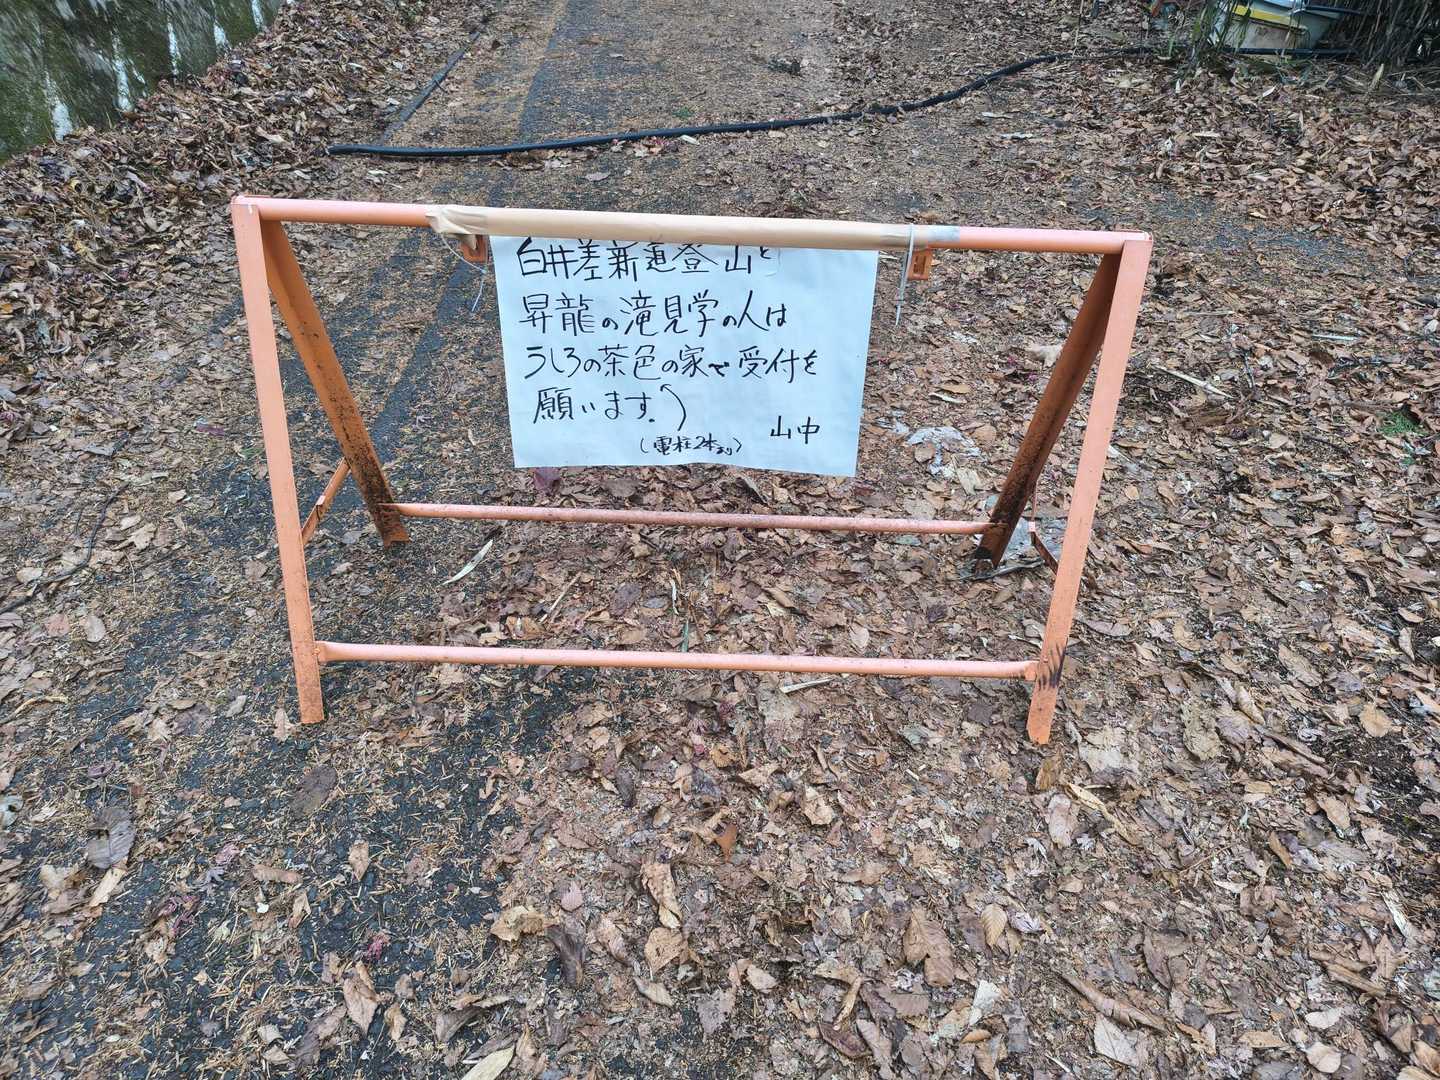 白井差新道登山と
昇龍の滝見学の人は
うしろの茶色の家で受付を
願います。
(電柱2本あり)
山中